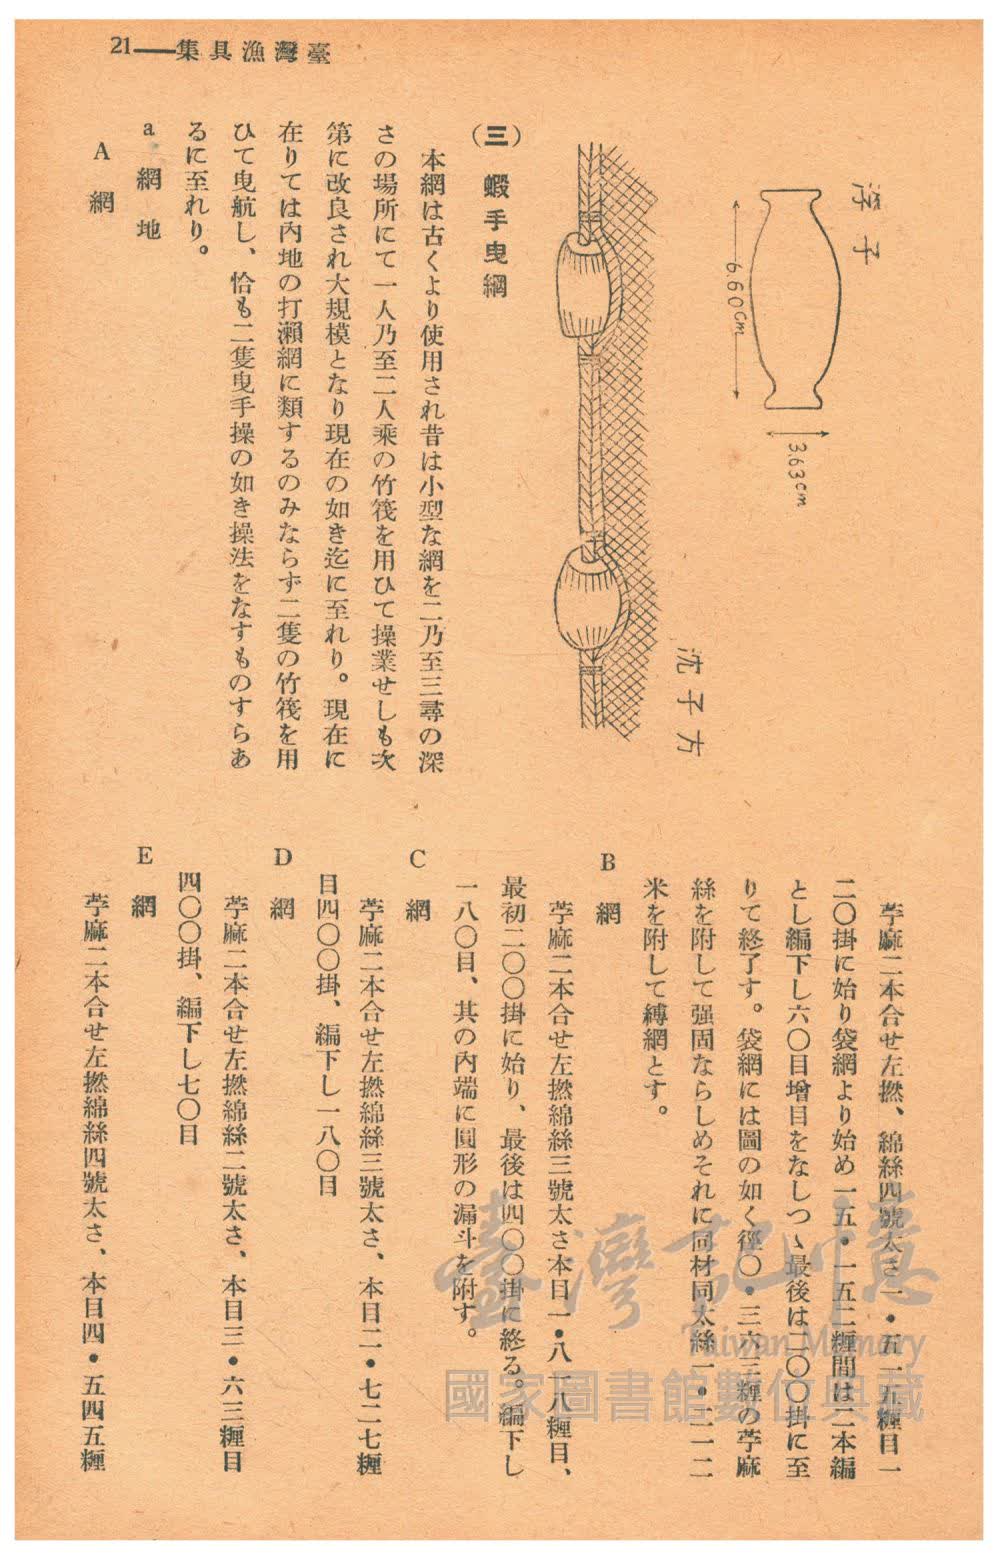 臺灣漁具集――21
浮子
6.60cm
3.63cm
沈子方
(三) 蝦手曳網
本網は古くより使用され昔は小型な網を二乃至三尋の深
さの場所にて一人乃至二人乘の竹筏を用ひて操業せしも次
第に改良され大規模となり現在の如き迄に至れり。現在に
在りては內地の打瀨網に類するのみならず二隻の竹筏を用
ひて曳航し、恰も二隻曳手操の如き操法をなすものすらあ
るに至れり。
a 網地
A 網
苧麻二本合せ左撚、綿絲四號太さ一・五一五糎目一
二〇掛に始り袋網より始め一五・一五二糎間は二本編
とし編下し六〇目增目をなしつゝ最後は二〇〇掛に至
りて終了す。袋網には圖の如く徑〇・三六三糎の苧麻
絲を附して强固ならしめそれに同材同太絲一・二一二
米を附して縛網とす。
B 網
苧麻二本合せ左撚綿絲三號太さ本目一・八一八糎目、
最初二〇〇掛に始り、最後は四〇〇掛に終る。編下し
一八〇目、其の內端に圓形の漏斗を附す。
C 網
苧麻二本合せ左撚綿絲三號太さ、本目二・七二七糎
目四〇〇掛、編下し一八〇目
D 網
苧麻二本合せ左撚綿絲二號太さ、本目三・六三糎目
四〇〇掛、編下し七〇目
E 網
苧麻二本合せ左撚綿絲四號太さ、本目四・五四五糎
臺灣記憶
Taiwan Memory
國家圖書館數位典藏